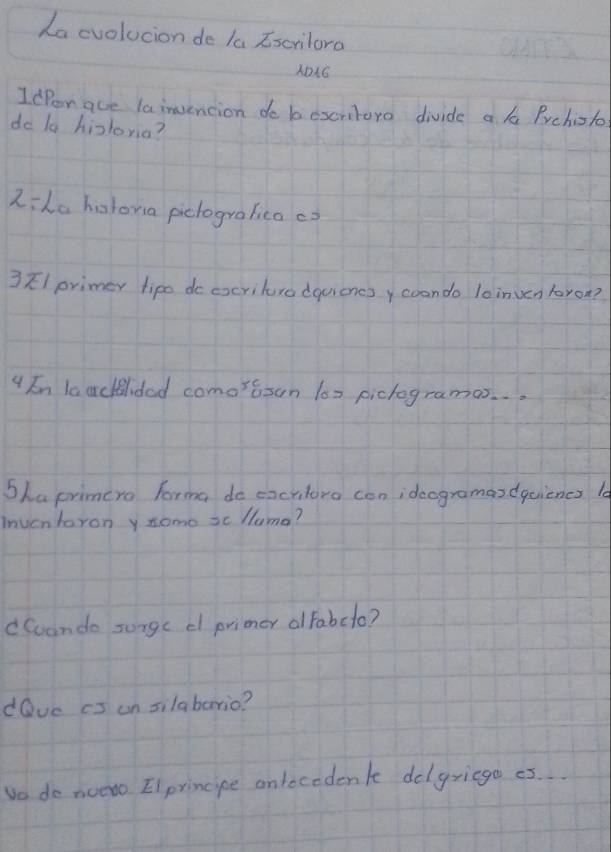 La evolucion de la Escritora
ADAG
1¿Por que la invencion de la escritora divide a la Prehisto
de la historia?
2-La historia pictografica es
3El primer tipo de escritura ¿quienes y cuando lo inventaron?
4En la actualidad como se usan los pictogramas...
5La primera forma de escritora con ideogramas ¿quienes la
inventaron y como se llama?
¿Cuando surge el primer alfabeto?
¿Que es un silabario?
Va de nuevo El principe antecedente del griego es...